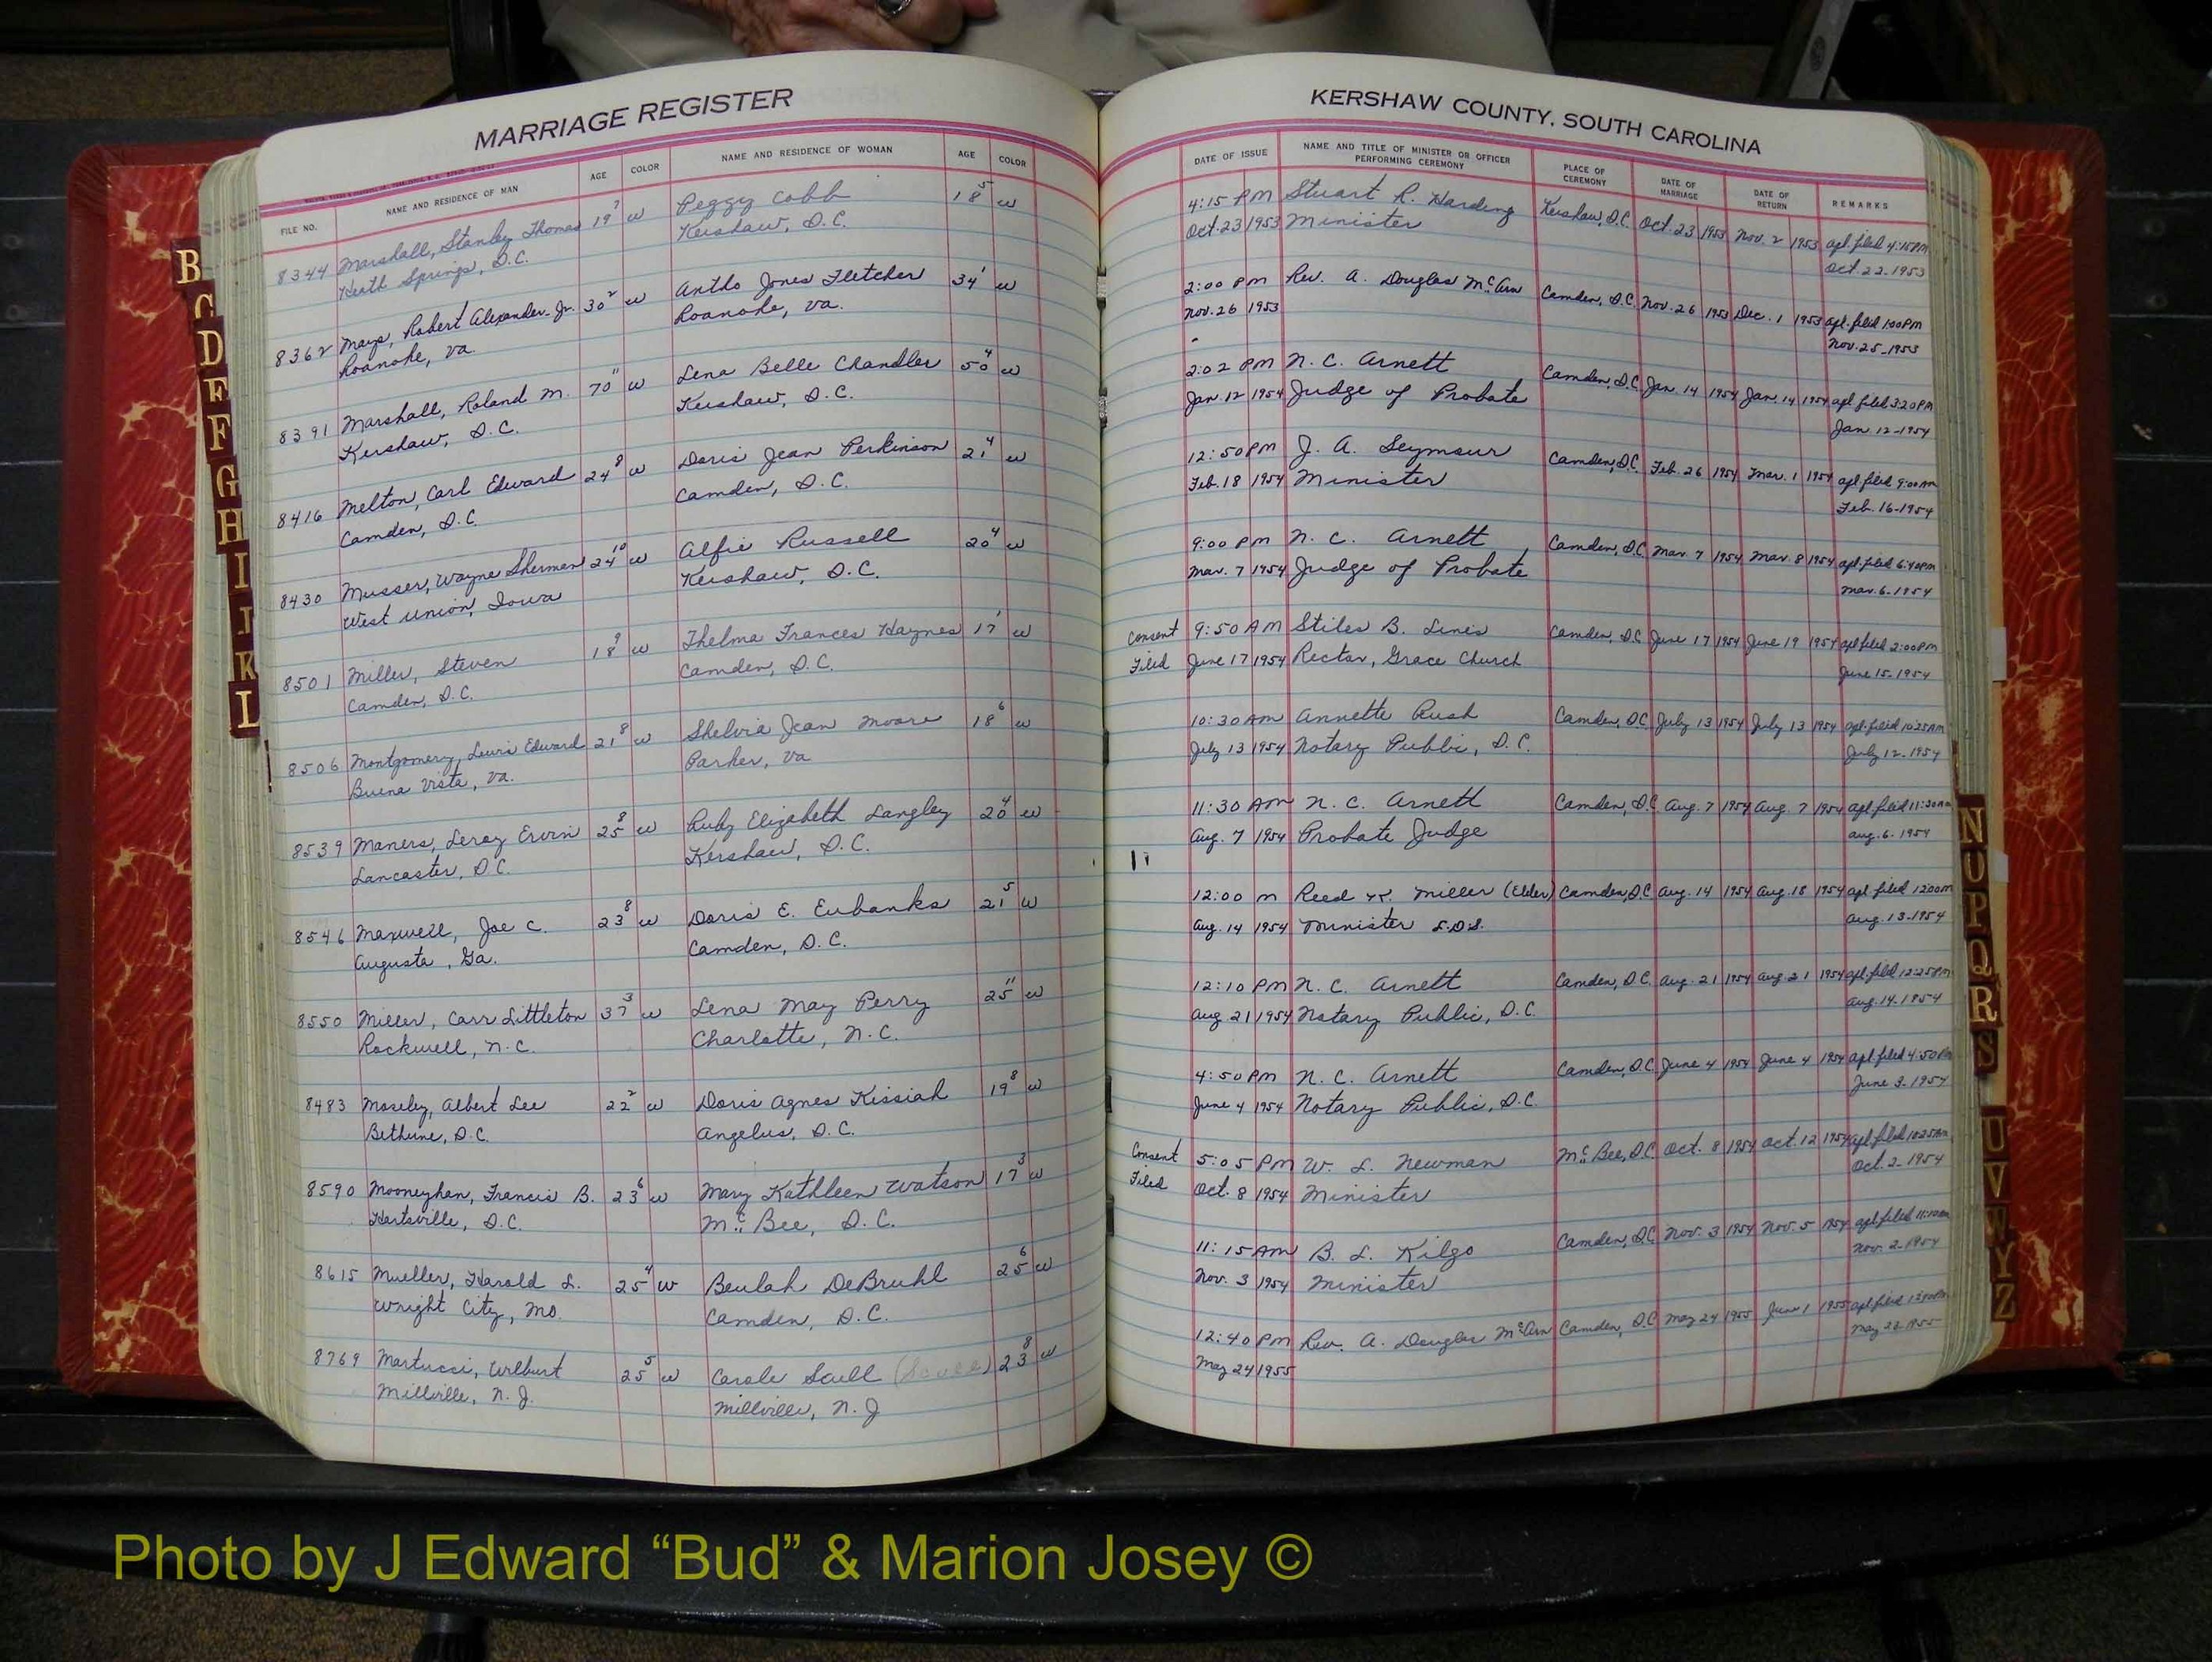 MARRIAGE REGISTER
FILE NO. NAME AND RESIDENCE OF MAN AGE COLOR NAME AND RESIDENCE OF WOMAN AGE COLOR
8344 Marshall, Stanley Thomas 19 7 w Peggy Cobb 18 5 w
Heath Springs, S.C. Kershaw, S.C.
8362 Mays, Robert Alexander Jr. 30 2 w Antho Jones Fletcher 34 1 w
Roanoke, Va. Roanoke, Va.
8391 Marshall, Roland M. 70 11 w Lena Belle Chandler 50 4 w
Kershaw, S.C. Kershaw, S.C.
8416 Melton, Carl Edward 24 8 w Doris Jean Perkinson 21 4 w
Camden, S.C. Camden, S.C.
8430 Musser, Wayne Sherman 24 10 w Alfie Russell 20 4 w
West Union, Iowa Kershaw, S.C.
8501 Miller, Steven 18 9 w Thelma Frances Haynes 17 1 w
Camden, S.C. Camden, S.C.
8506 Montgomery, Lewis Edward 21 8 w Shelvia Jean Moore 18 6 w
Buena Vista, Va. Parker, Va
8539 Maners, Leroy Ervin 25 8 w Ruby Elizabeth Langley 20 4 w
Lancaster, S.C. Kershaw, S.C.
8546 Maxwell, Joe C. 23 8 w Doris E. Eubanks 21 5 w
Augusta, Ga. Camden, S.C.
8550 Miller, Carr Littleton 37 3 w Lena May Perry 25 11 w
Rockwell, N.C. Charlotte, N.C.
8483 Moseley, Albert Lee 22 2 w Doris Agnes Kissiah 19 8 w
Bethune, S.C. Angelus, S.C.
8590 Mooneyhan, Francis B. 23 6 w Mary Kathleen Watson 17 3 w
Hartsville, S.C. McBee, S.C.
8615 Mueller, Harold L. 25 4 w Beulah DeBruhl 25 6 w
Wright City, Mo. Camden, S.C.
8769 Martucci, Wilburt 25 5 w Carole Scull (Scull) 23 8 w
Millville, N.J. Millville, N.J
KERSHAW COUNTY, SOUTH CAROLINA
DATE OF ISSUE NAME AND TITLE OF MINISTER OR OFFICER PERFORMING CEREMONY PLACE OF CEREMONY DATE OF MARRIAGE DATE OF RETURN REMARKS
4:15 PM Stuart R. Harding Kershaw, S.C. Oct. 23 1953 Nov. 2 1953 apl. filed 4:15PM
Oct. 23 1953 Minister Oct. 22-1953
2:00 PM Rev. A. Douglas McArn Camden, S.C. Nov. 26 1953 Dec. 1 1953 apl. filed 1:00PM
Nov. 26 1953 Nov. 25-1953
2:02 PM N. C. Arnett Camden, S.C. Jan. 14 1954 Jan. 14 1954 apl filed 3:20PM
Jan. 12 1954 Judge of Probate Jan. 12-1954
12:50PM J. A. Seymour Camden, S.C. Feb. 26 1954 Mar. 1 1954 apl filed 9:00AM
Feb. 18 1954 Minister Feb. 16-1954
9:00 PM N. C. Arnett Camden, S.C. Mar. 7 1954 Mar. 8 1954 apl. filed 6:40PM
Mar. 7 1954 Judge of Probate Mar. 6-1954
Consent 9:50 AM Stiles B. Lines Camden, S.C. June 17 1954 June 19 1954 apl filed 2:00PM
Filed June 17 1954 Rector, Grace Church June 15-1954
10:30 AM Annette Rush Camden, S.C. July 13 1954 July 13 1954 apl. filed 10:25AM
July 13 1954 Notary Public, S.C. July 12-1954
11:30 AM N. C. Arnett Camden, S.C. Aug. 7 1954 Aug. 7 1954 apl filed 11:30AM
Aug. 7 1954 Probate Judge Aug. 6-1954
12:00 M Reed K. Miller (Elder) Camden, S.C. Aug. 14 1954 Aug. 18 1954 apl filed 12:00M
Aug. 14 1954 Minister L.D.S. Aug. 13-1954
12:10 PM N. C. Arnett Camden, S.C. Aug. 21 1954 Aug 21 1954 apl. filed 12:25PM
Aug 21 1954 Notary Public, S.C. Aug. 14-1954
4:50 PM N. C. Arnett Camden, S.C. June 4 1954 June 4 1954 apl. filed 4:50PM
June 4 1954 Notary Public, S.C. June 3-1954
Consent 5:05 PM W. L. Newman McBee, S.C. Oct. 8 1954 Oct. 12 1954 apl filed 10:25AM
Filed Oct. 8 1954 Minister Oct. 2-1954
11:15 AM B. L. Kilgo Camden, S.C. Nov. 3 1954 Nov. 5 1954 apl filed 11:10AM
Nov. 3 1954 Minister Nov. 2-1954
12:40 PM Rev. A. Douglas McArn Camden, S.C May 24 1955 June 1 1955 apl. filed
May 24 1955 May 1955
B
C
D
E
F
G
H
I
J
K
L
N
O
P
Q
R
S
U
V
W
Y
Z
Photo by J Edward “Bud” & Marion Josey ©